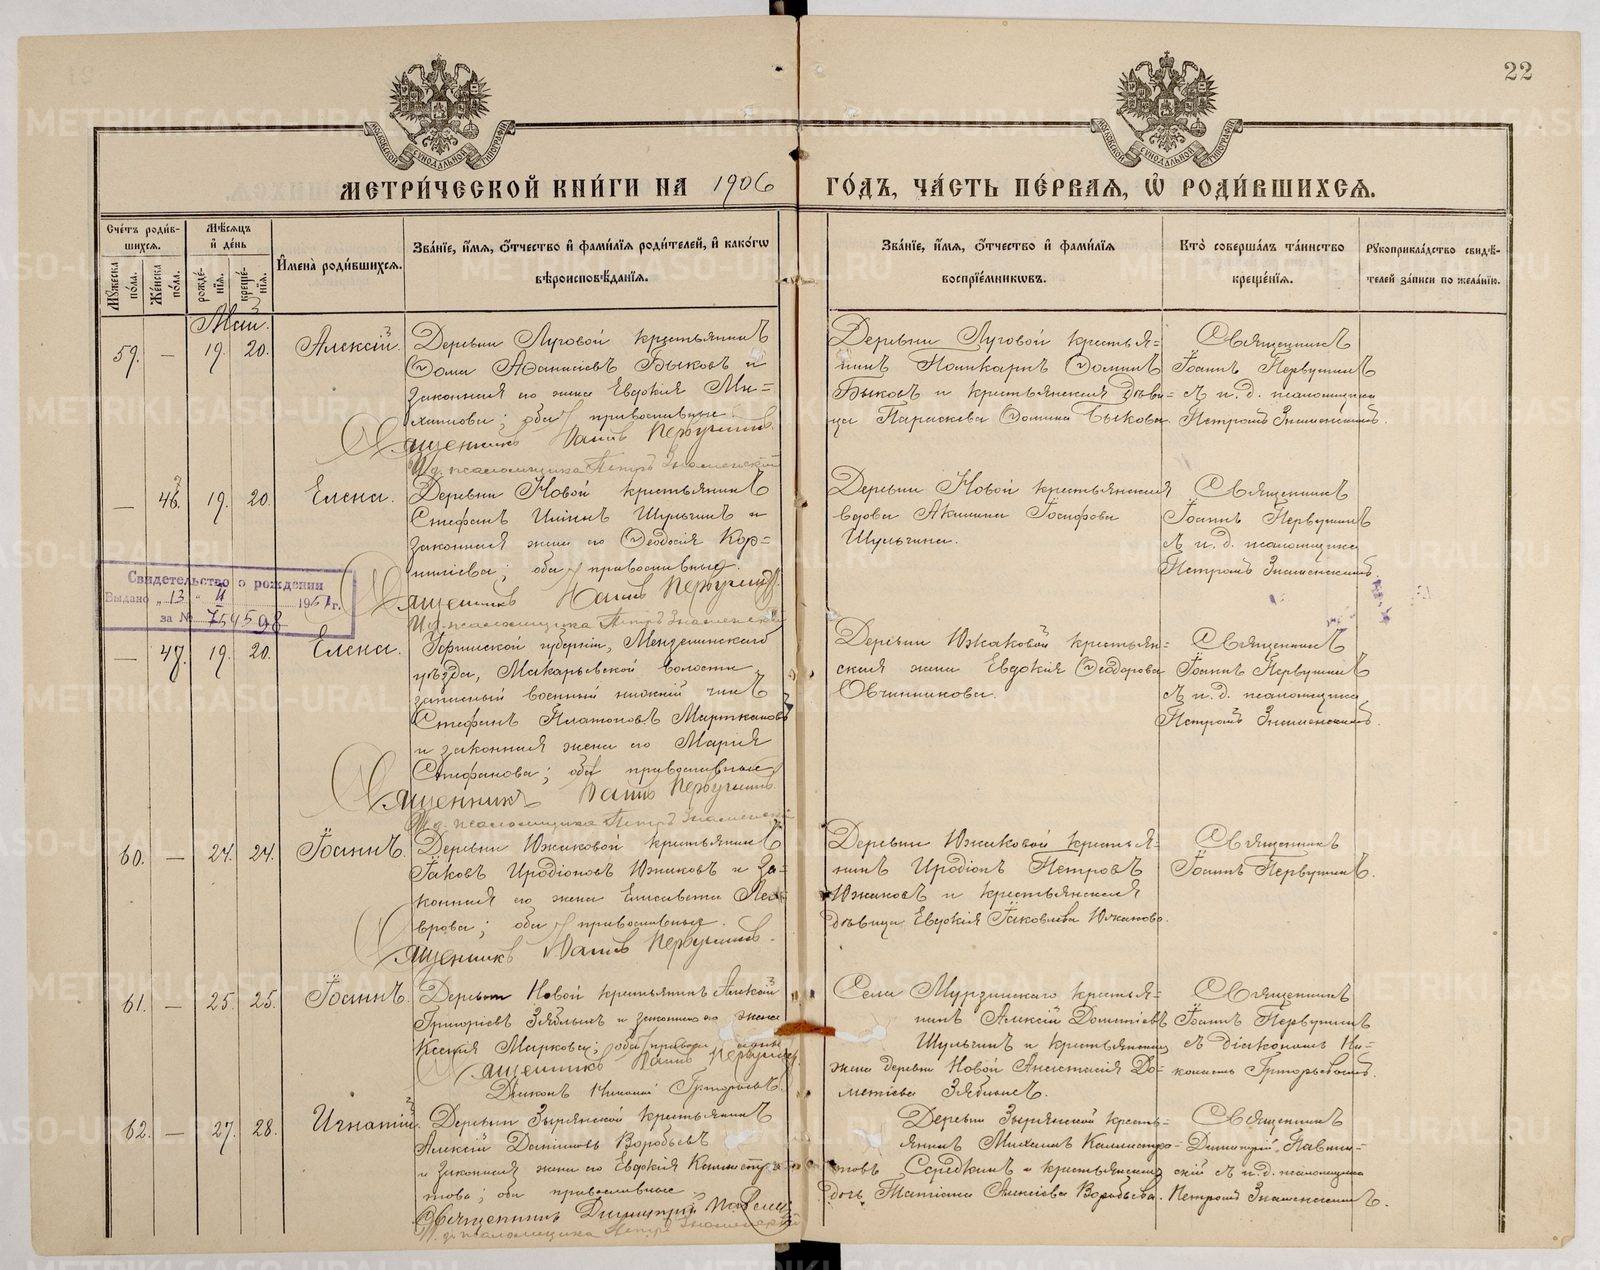 22
МОСКОВСКОЙ СѴНОДАЛЬНОЙ ТИПОГРАФІИ
МОСКОВСКОЙ СѴНОДАЛЬНОЙ ТИПОГРАФІИ
МЕТРИ́ЧЕСКОЙ КНИ́ГИ НА 1906 ГО́ДЪ, ЧА́СТЬ ПЕ́РВАЯ, Ѿ РОДИ́ВШИХСЯ.
Сче́тъ роди́в-
шихся.
Мѹ́жеска по́ла.
Же́нска по́ла.
Мѣ́сяцъ
и҆ де́нь
рожде́-
нїя.
креще́-
нїя.
И҆мена̀ роди́вшихся.
Зва́нїе, и҆́мя, ѻ҆́тчество и҆ фами́лїя роди́телей, и҆ како́гѡ
вѣроисповѣ́данїя.
Зва́нїе, и҆́мя, ѻ҆́тчество и҆ фами́лїя
воспрїе́мникѡвъ.
Кто̀ соверша́лъ та́инство
креще́нїя.
Рѹкоприкла́дство свидѣ́-
телей за́писи по жела́нїю.
Май.
59. — 19. 20. Алексій.
Деревни Луговой крестьянинъ
Ѳома Аѳанасіевъ Быковъ и
законная его жена Евдокія Ми-
хаилова; оба православные.
Священникъ Іоаннъ Первушинъ
И. д. псаломщика Петръ Знаменскій
Деревни Луговой крестья-
нинъ Поликарпъ Ѳоминъ
Быковъ и крестьянская дѣви-
ца Параскева Ѳомина Быкова.
Священникъ
Іоаннъ Первушинъ
съ и. д. псаломщика
Петромъ Знаменскимъ.
— 46. 19. 20. Елена.
Деревни Новой крестьянинъ
Стефанъ Шульгинъ и
законная жена его Ѳеодосія Кор-
нилieва; оба православные.
Священникъ Іоаннъ Первушинъ
И. д. псаломщика Петръ Знаменскій
Деревни Новой крестьянская
вдова Акилина Іосифова
Шульгина.
Священникъ
Іоаннъ Первушинъ
съ и. д. псаломщика
Петромъ Знаменскимъ.
Свидетельство о рождении
Выдано „13“ II 1957 г.
за № 754598
— 47. 19. 20. Елена.
Уфимской губерніи, Мензелинскаго
уѣзда, Макарьевской волости
запасный военный нижній чинъ
Стефанъ Платоновъ
и законная жена его Марія
Стефанова; оба православные
Священникъ Іоаннъ Первушинъ
И. д. псаломщика Петръ Знаменскій
Деревни Южаковой крестьян-
ская жена Евдокія Ѳеодорова
Овчинникова.
Священникъ
Іоаннъ Первушинъ
съ и. д. псаломщика
Петромъ Знаменскимъ.
60. — 24. 24. Іоаннъ.
Деревни Южаковой крестьянинъ
Іаковъ Иродіоновъ Южаковъ и за-
конная его жена Елисавета Лав-
врова; оба православные.
Священникъ Іоаннъ Первушинъ.
Деревни Южаковой крестья-
нинъ Иродіонъ Петровъ
Южаковъ и крестьянская
дѣвица Евдокія Іаковлева Южакова.
Священникъ
Іоаннъ Первушинъ.
61. — 25. 25. Іоаннъ.
Деревни Новой крестьянинъ Алексій
Григоріевъ Зяблинъ и законная его жена
Ксенія Маркова; оба православные
Священникъ Іоаннъ Первушинъ.
Діаконъ Николай Григорьевъ.
Села Мурзинскаго крестья-
нинъ Алексій Дометіевъ
Шульгинъ и крестьянская
жена деревни Новой Анастасія До-
метіева
Священникъ
Іоаннъ Первушинъ
съ діакономъ Ни-
колаемъ Григорьевымъ.
62. — 27. 28. Игнатій.
Деревни Зырянской крестьянинъ
Алексій Воробьевъ
и законная жена его Евдокія Каллистра-
това; оба православные.
Священникъ Димитрій
И. д. псаломщика Петръ Знаменскій
Деревни Зырянской кресть-
янинъ Михаилъ Каллистра-
товъ Середкинъ и крестьянская
дочь Татіана Алексіева Воробьева.
Священникъ
Димитрій
съ и. д. псаломщика
Петромъ Знаменскимъ.
METRIKI.GASO-URAL.RU